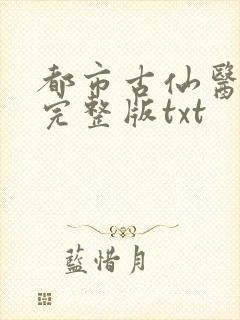 都市古仙醫
完整版txt
藍惜月